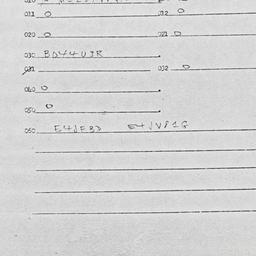 011 0 012 0
020 0 021 0
030 BD44UJR
031 032 0
040 0
050 0
060 E4JEBD E4JVP1G